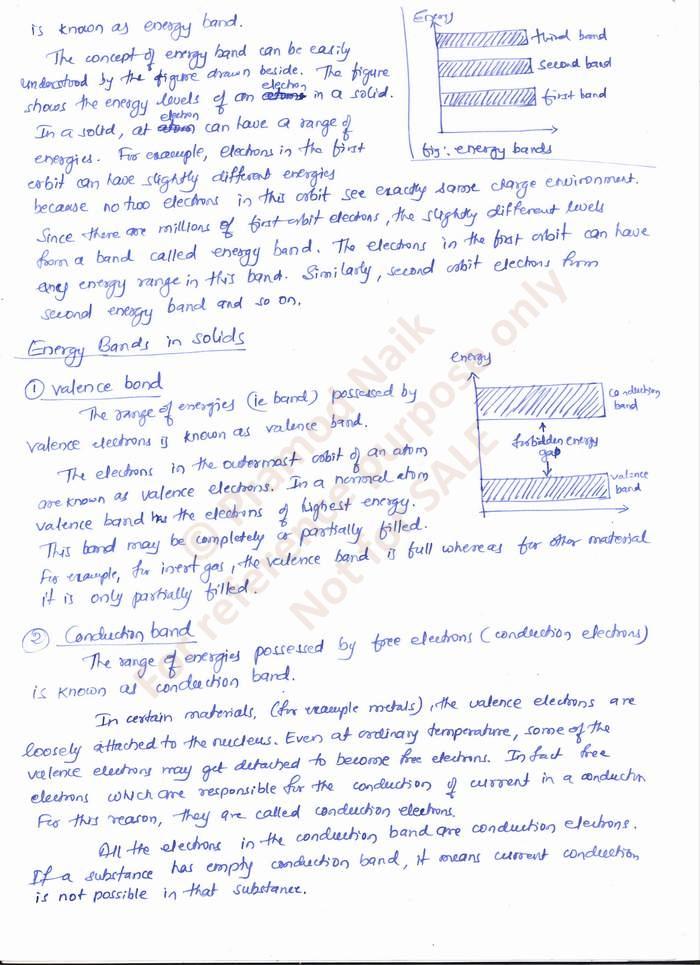 is known as energy band.
Energy
third band
second band
first band
fig: energy bands
The concept of energy band can be easily
understood by the figure drawn beside. The figure
shows the energy levels of an electron in a solid.
In a solid, at electron can have a range of
energies. For example, electrons in the first
orbit can have slightly different energies
because no two electrons in this orbit see exactly same charge environment.
Since there are millions of first orbit electrons, the slightly different levels
from a band called energy band. The electrons in the first orbit can have
any energy range in this band. Similarly, second orbit electrons from
second energy band and so on.
Energy Bands in solids
① Valence bond
The range of energies (ie band) possessed by
valence electrons is known as valence band.
Energy
conduction
band
forbidden energy
gap
valence
band
The electrons in the outermost orbit of an atom
are known as valence electrons. In a normal atom
valence band has the electrons of highest energy.
This band may be completely or partially filled.
For example, for inert gas, the valence band is full whereas for other material
it is only partially filled.
② Conduction band
The range of energies possessed by free electrons (conduction electrons)
is known as conduction band.
In certain materials, (for example metals), the valence electrons are
loosely attached to the nucleus. Even at ordinary temperature, some of the
valence electrons may get detached to become free electrons. In fact free
electrons which are responsible for the conduction of current in a conductor
For this reason, they are called conduction electrons.
All the electrons in the conduction band are conduction electrons.
If a substance has empty conduction band, it means current conduction
is not possible in that substance.
© Pramod Naik
For reference purpose only
Not for SALE